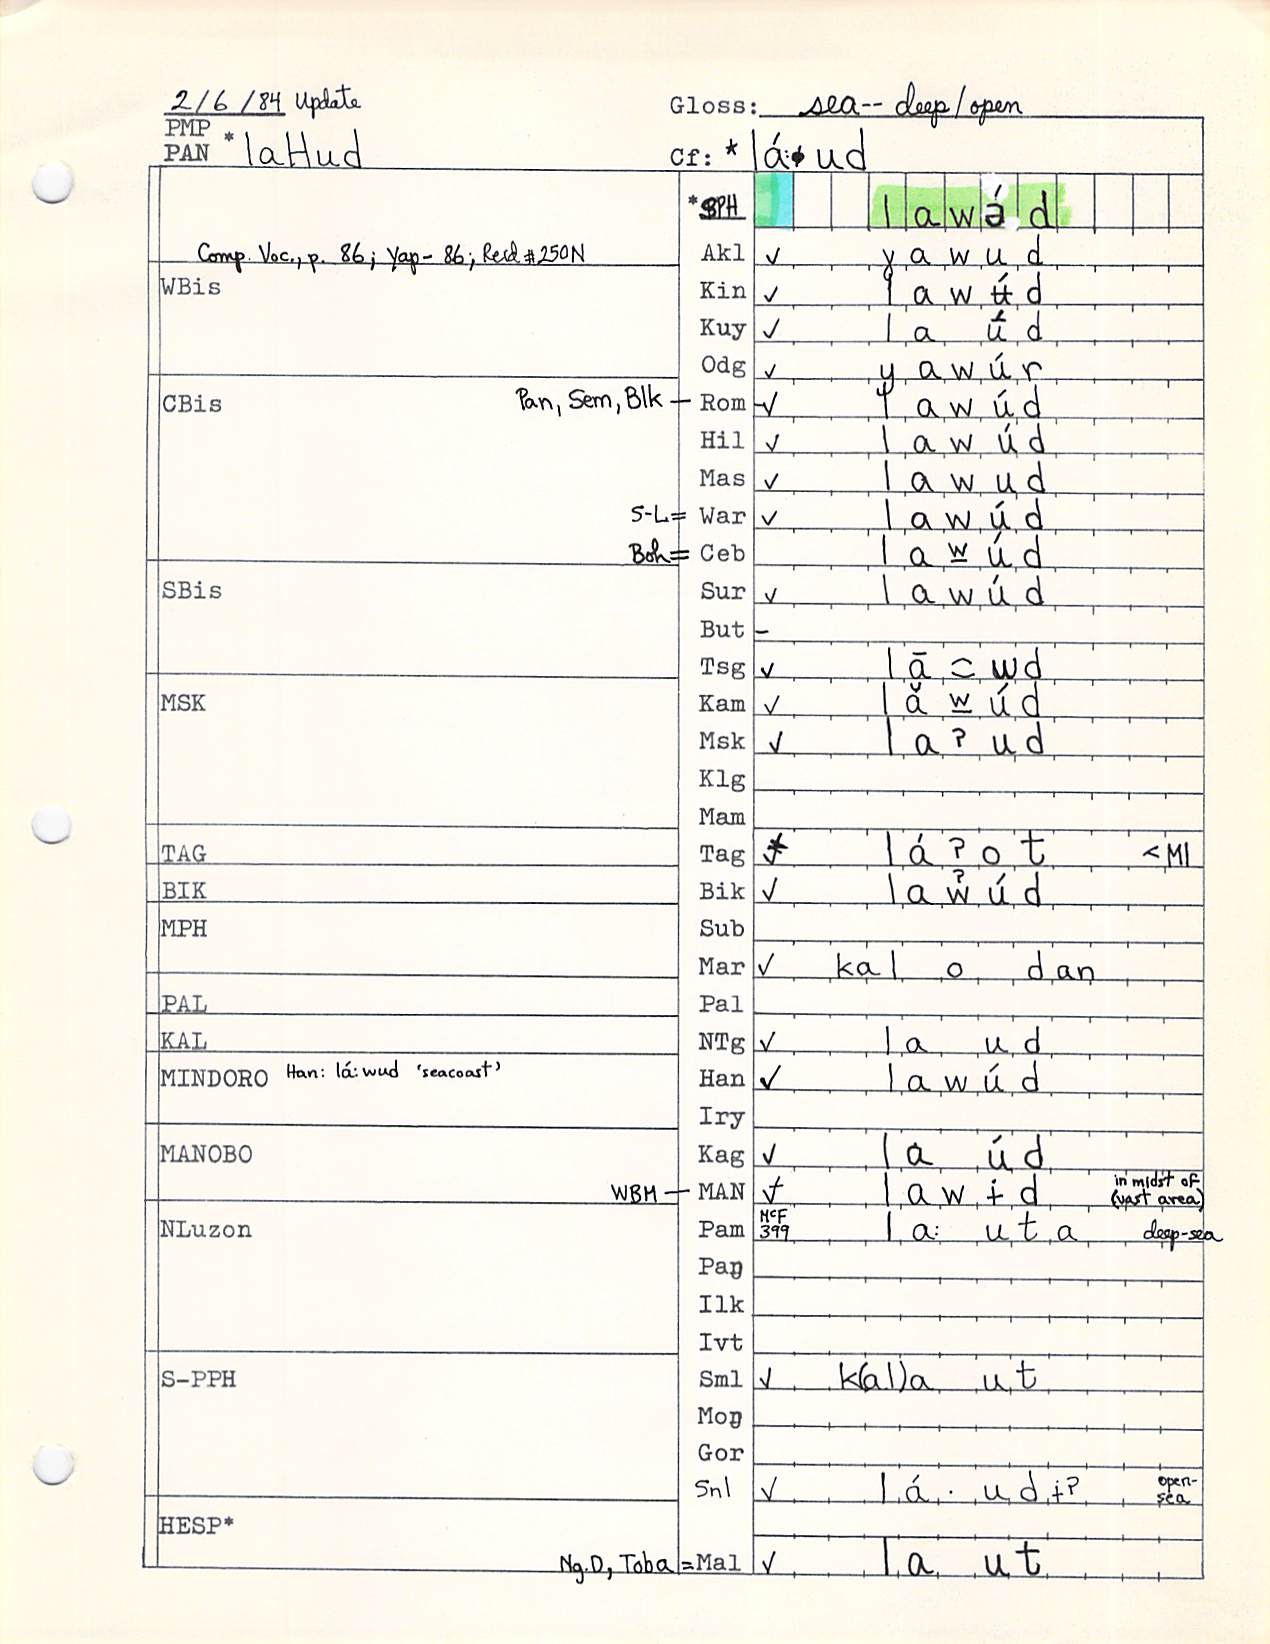 2/6/84 Update
Gloss: sea-- deep/open
PMP
PAN *laHud
Cf: * lá:ɸud
*SPH lawə́d
Comp. Voc., p. 86; Yap- 86; Reid #250N
Akl ✓ yawud
WBis
Kin ✓ lawúd
Kuy ✓ la úd
Odg ✓ yawúr
CBis
Pan, Sem, Blk — Rom ✓ lawúd
Hil ✓ lawúd
Mas ✓ lawud
S-L= War ✓ lawúd
Boh= Ceb law̲úd
SBis
Sur ✓ lawúd
But -
Tsg ✓ lā wd
MSK
Kam ✓ lăw̲úd
Msk ✓ la?ud
Klg
Mam
TAG
Tag lá?ot <Ml
BIK
Bik ✓ law̉úd
MPH
Sub
Mar ✓ kal o dan
PAL
Pal
KAL
NTg ✓ la ud
MINDORO Han: lá:wud 'seacoast'
Han ✓ lawúd
Iry
MANOBO
Kag ✓ la úd
WBM — MAN lawɨd in midst of (vast area)
NLuzon
Pam McF 399 la: uta deep-sea
Paŋ
Ilk
Ivt
S-PPH
Sml ✓ k(al)a ut
Moŋ
Gor
Snl ✓ lá· udɨ? open-sea
HESP*
Ng.D, Toba = Mal ✓ la ut